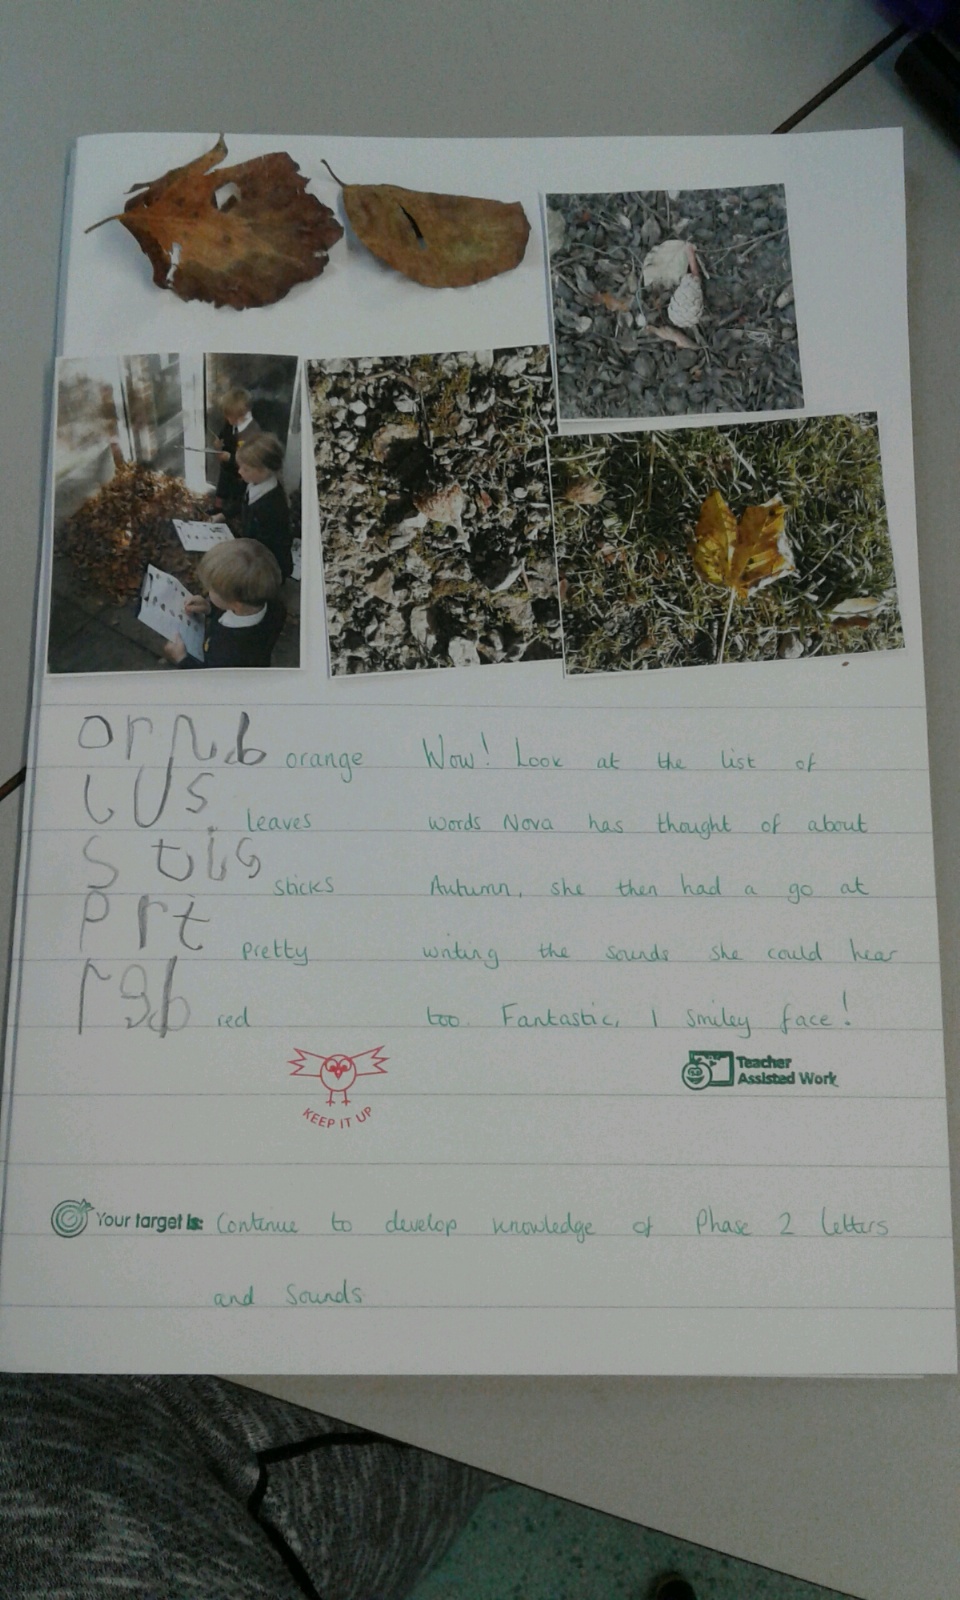 ornb orange Wow! Look at the list of
lVs leaves words Nova has thought of about
s tis sticks Autumn, she then had a go at
Prt pretty writing the sounds she could hear
red too. Fantastic, 1 smiley face!
KEEP IT UP
Teacher
Assisted Work
Your target is: Continue to develop knowledge of Phase 2 letters
and sounds